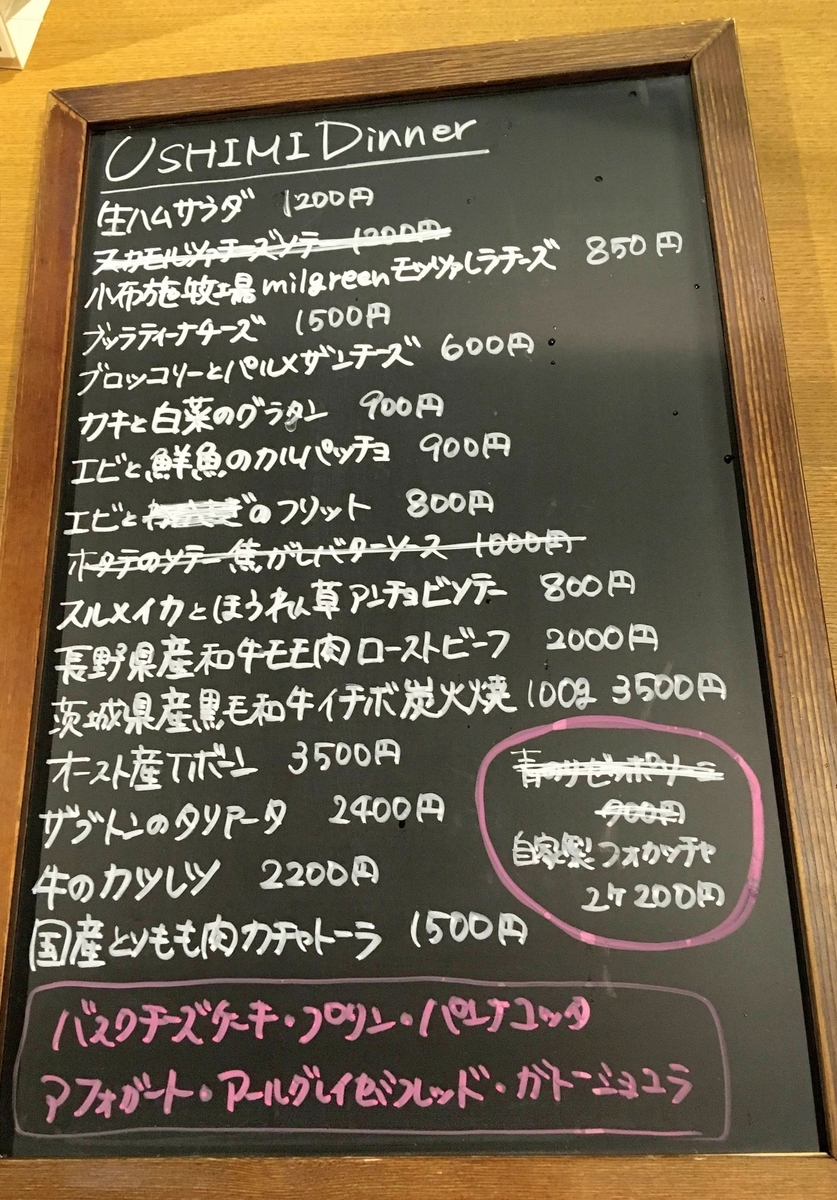 USHIMI Dinner
生ハムサラダ 1200円
スカモルツァチーズソテー 1200円
小布施牧場milgreenモッツァレラチーズ 850円
ブッラティーナチーズ 1500円
ブロッコリーとパルメザンチーズ 600円
カキと白菜のグラタン 900円
エビと鮮魚のカルパッチョ 900円
エビと のフリット 800円
ホタテのソテー焦がしバターソース 1000円
スルメイカとほうれん草アンチョビソテー 800円
長野県産和牛モモ肉ローストビーフ 2000円
茨城県産黒毛和牛イチボ炭火焼 100g 3500円
オースト産Tボーン 3500円
ザブトンのタリアータ 2400円
牛のカツレツ 2200円
国産とりもも肉カチャトーラ 1500円
青のりゼッポリーニ
900円
自家製フォカッチャ
2ケ 200円
バスクチーズケーキ・プリン・パンナコッタ
アフォガート・アールグレイセミフレッド・ガトーショコラ